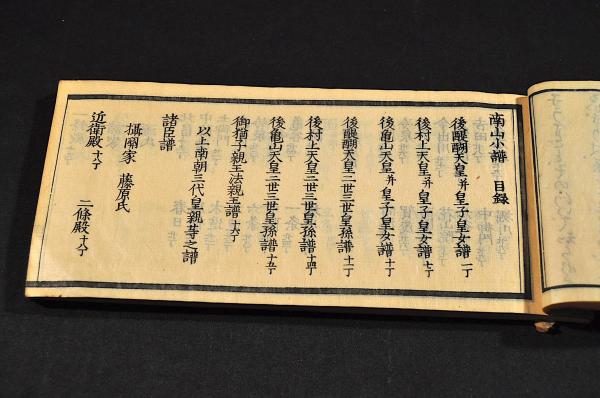 南山小譜 目録
後醍醐天皇并皇子皇女譜 一丁
後村上天皇并皇子皇女譜 七丁
後亀山天皇并皇子皇女譜 十丁
後醍醐天皇二世三世皇孫譜 十一丁
後村上天皇二世三世皇孫譜 十四丁
後亀山天皇二世三世皇孫譜 十五丁
御猶子親王法親王譜 十六丁
以上南朝三代皇親等之譜
諸臣譜
攝關家 藤原氏
近衛殿 十八丁 二條殿 十八丁